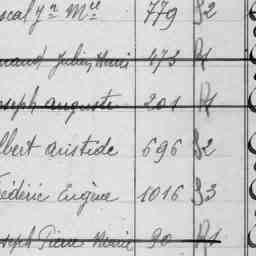 scal Jn Mel 779 S2
nand Julien Henri 173 R1
oseph auguste 201 R1
lbert aristide 696 S2
rédéric Eugène 1016 S3
oseph Pierre Marie 90 R1